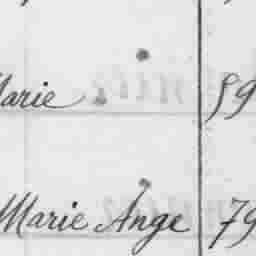 Marie 59
Marie Ange 79